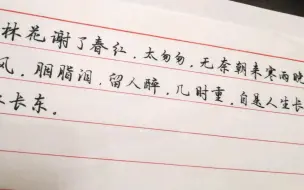 林花谢了春红．太匆匆．无奈朝来寒雨晚
风．胭脂泪．留人醉．几时重．自是人生长
长东．